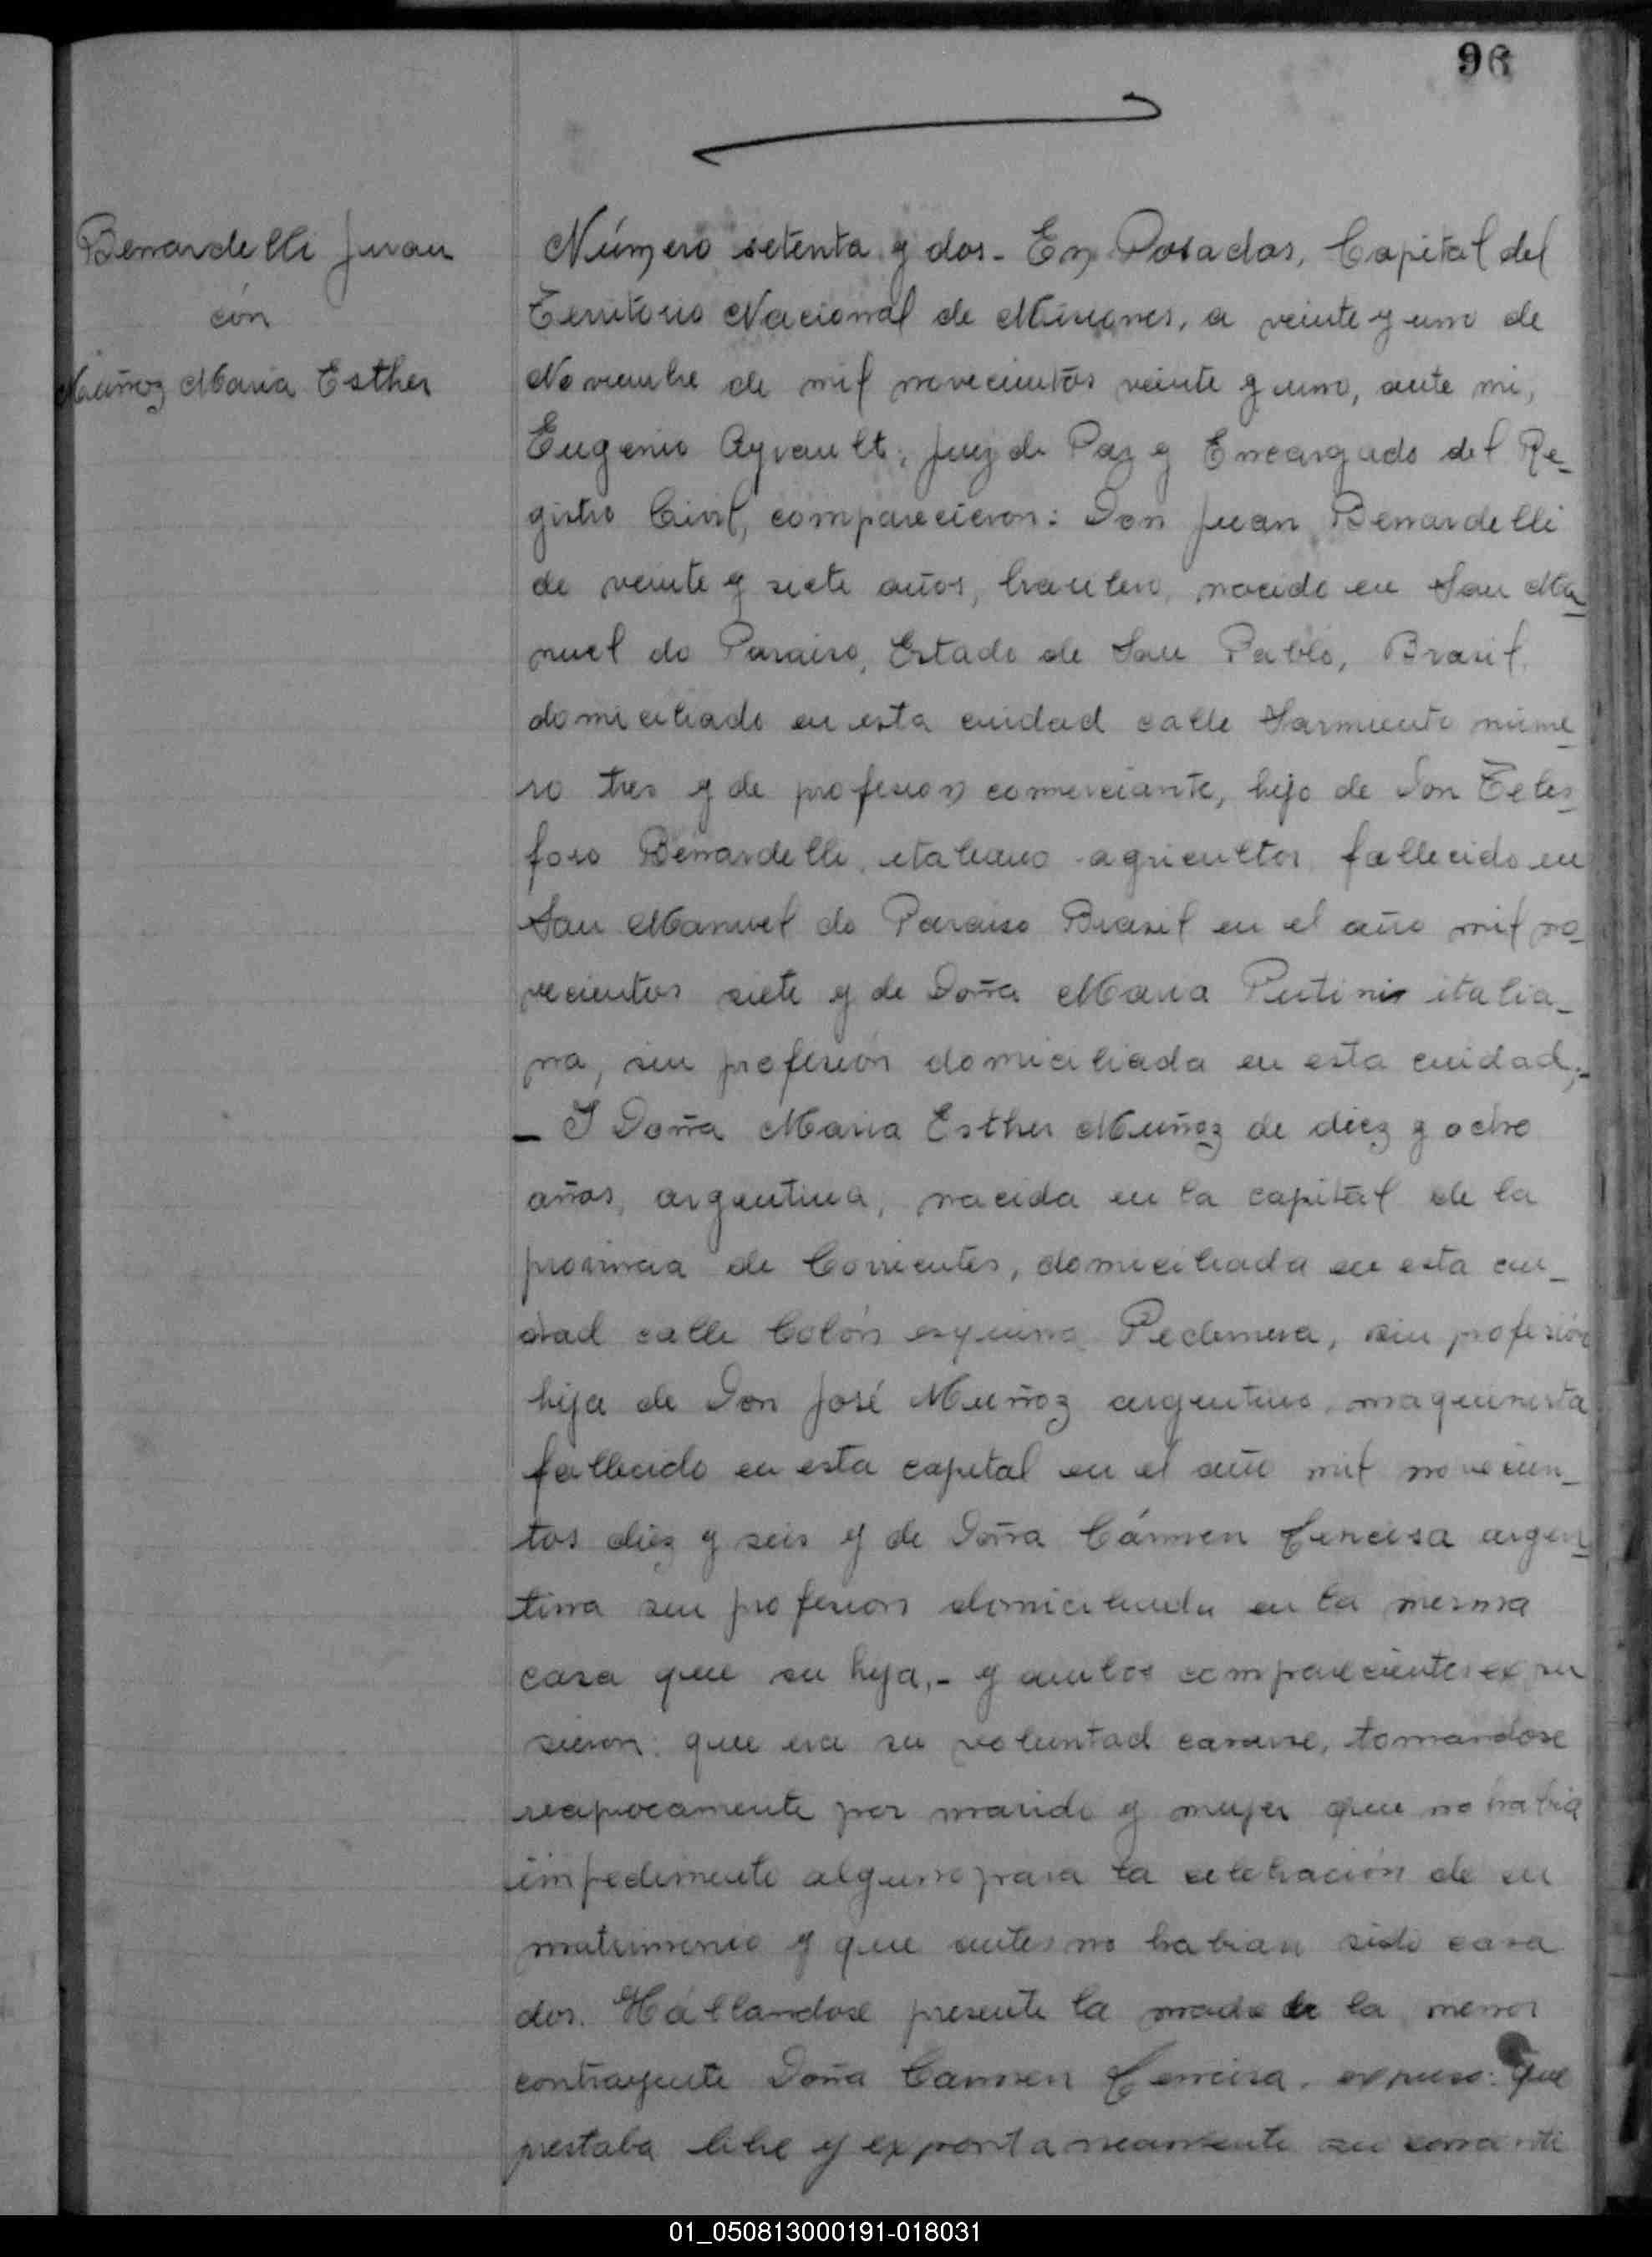 96
Benardelli Juan
con
Muñoz Maria Esther
Número setenta y dos.- En Posadas, Capital del
Territorio Nacional de Misiones, a veinte y uno de
Noviembre de mil novecientos veinte y uno, ante mi,
Eugenio Ayrault, Juez de Paz y Encargado del Re-
gistro Civil, comparecieron: Don Juan Benardelli
de veinte y siete años, brasilero, nacido en San Ma-
nuel do Paraiso, Estado de San Pablo, Brasil,
domiciliado en esta ciudad calle Sarmiento núme-
ro tres y de profesion comerciante, hijo de Don Teles-
foro Benardelli, italiano agricultor, fallecido en
San Manuel do Paraiso Brasil en el año mil no-
vecientos siete y de Doña Maria Putini italia-
na, sin profesión domiciliada en esta ciudad;-
- I Doña Maria Esther Muñoz de diez y ocho
años, argentina, nacida en la capital de la
provincia de Corrientes, domiciliada en esta ciu-
dad calle Colón esquina Pedernera, sin profesión
hija de Don José Muñoz argentino, maquinista
fallecido en esta capital en el año mil novecien-
tos diez y seis y de Doña Cármen argen-
tina sin profesion domiciliada en la misma
casa que su hija,- y ambos comparecientes expu
sieron: que era su voluntad casarse, tomandose
reciprocamente por marido y mujer que no habia
impedimento alguno para la celebración de su
matrimonio y que antes no habian sido casa
dos. Hállandose presente la madre de la menor
contrayente Doña Carmen expuso: que
prestaba libre y expontaneamente su consenti
01_050813000191-018031